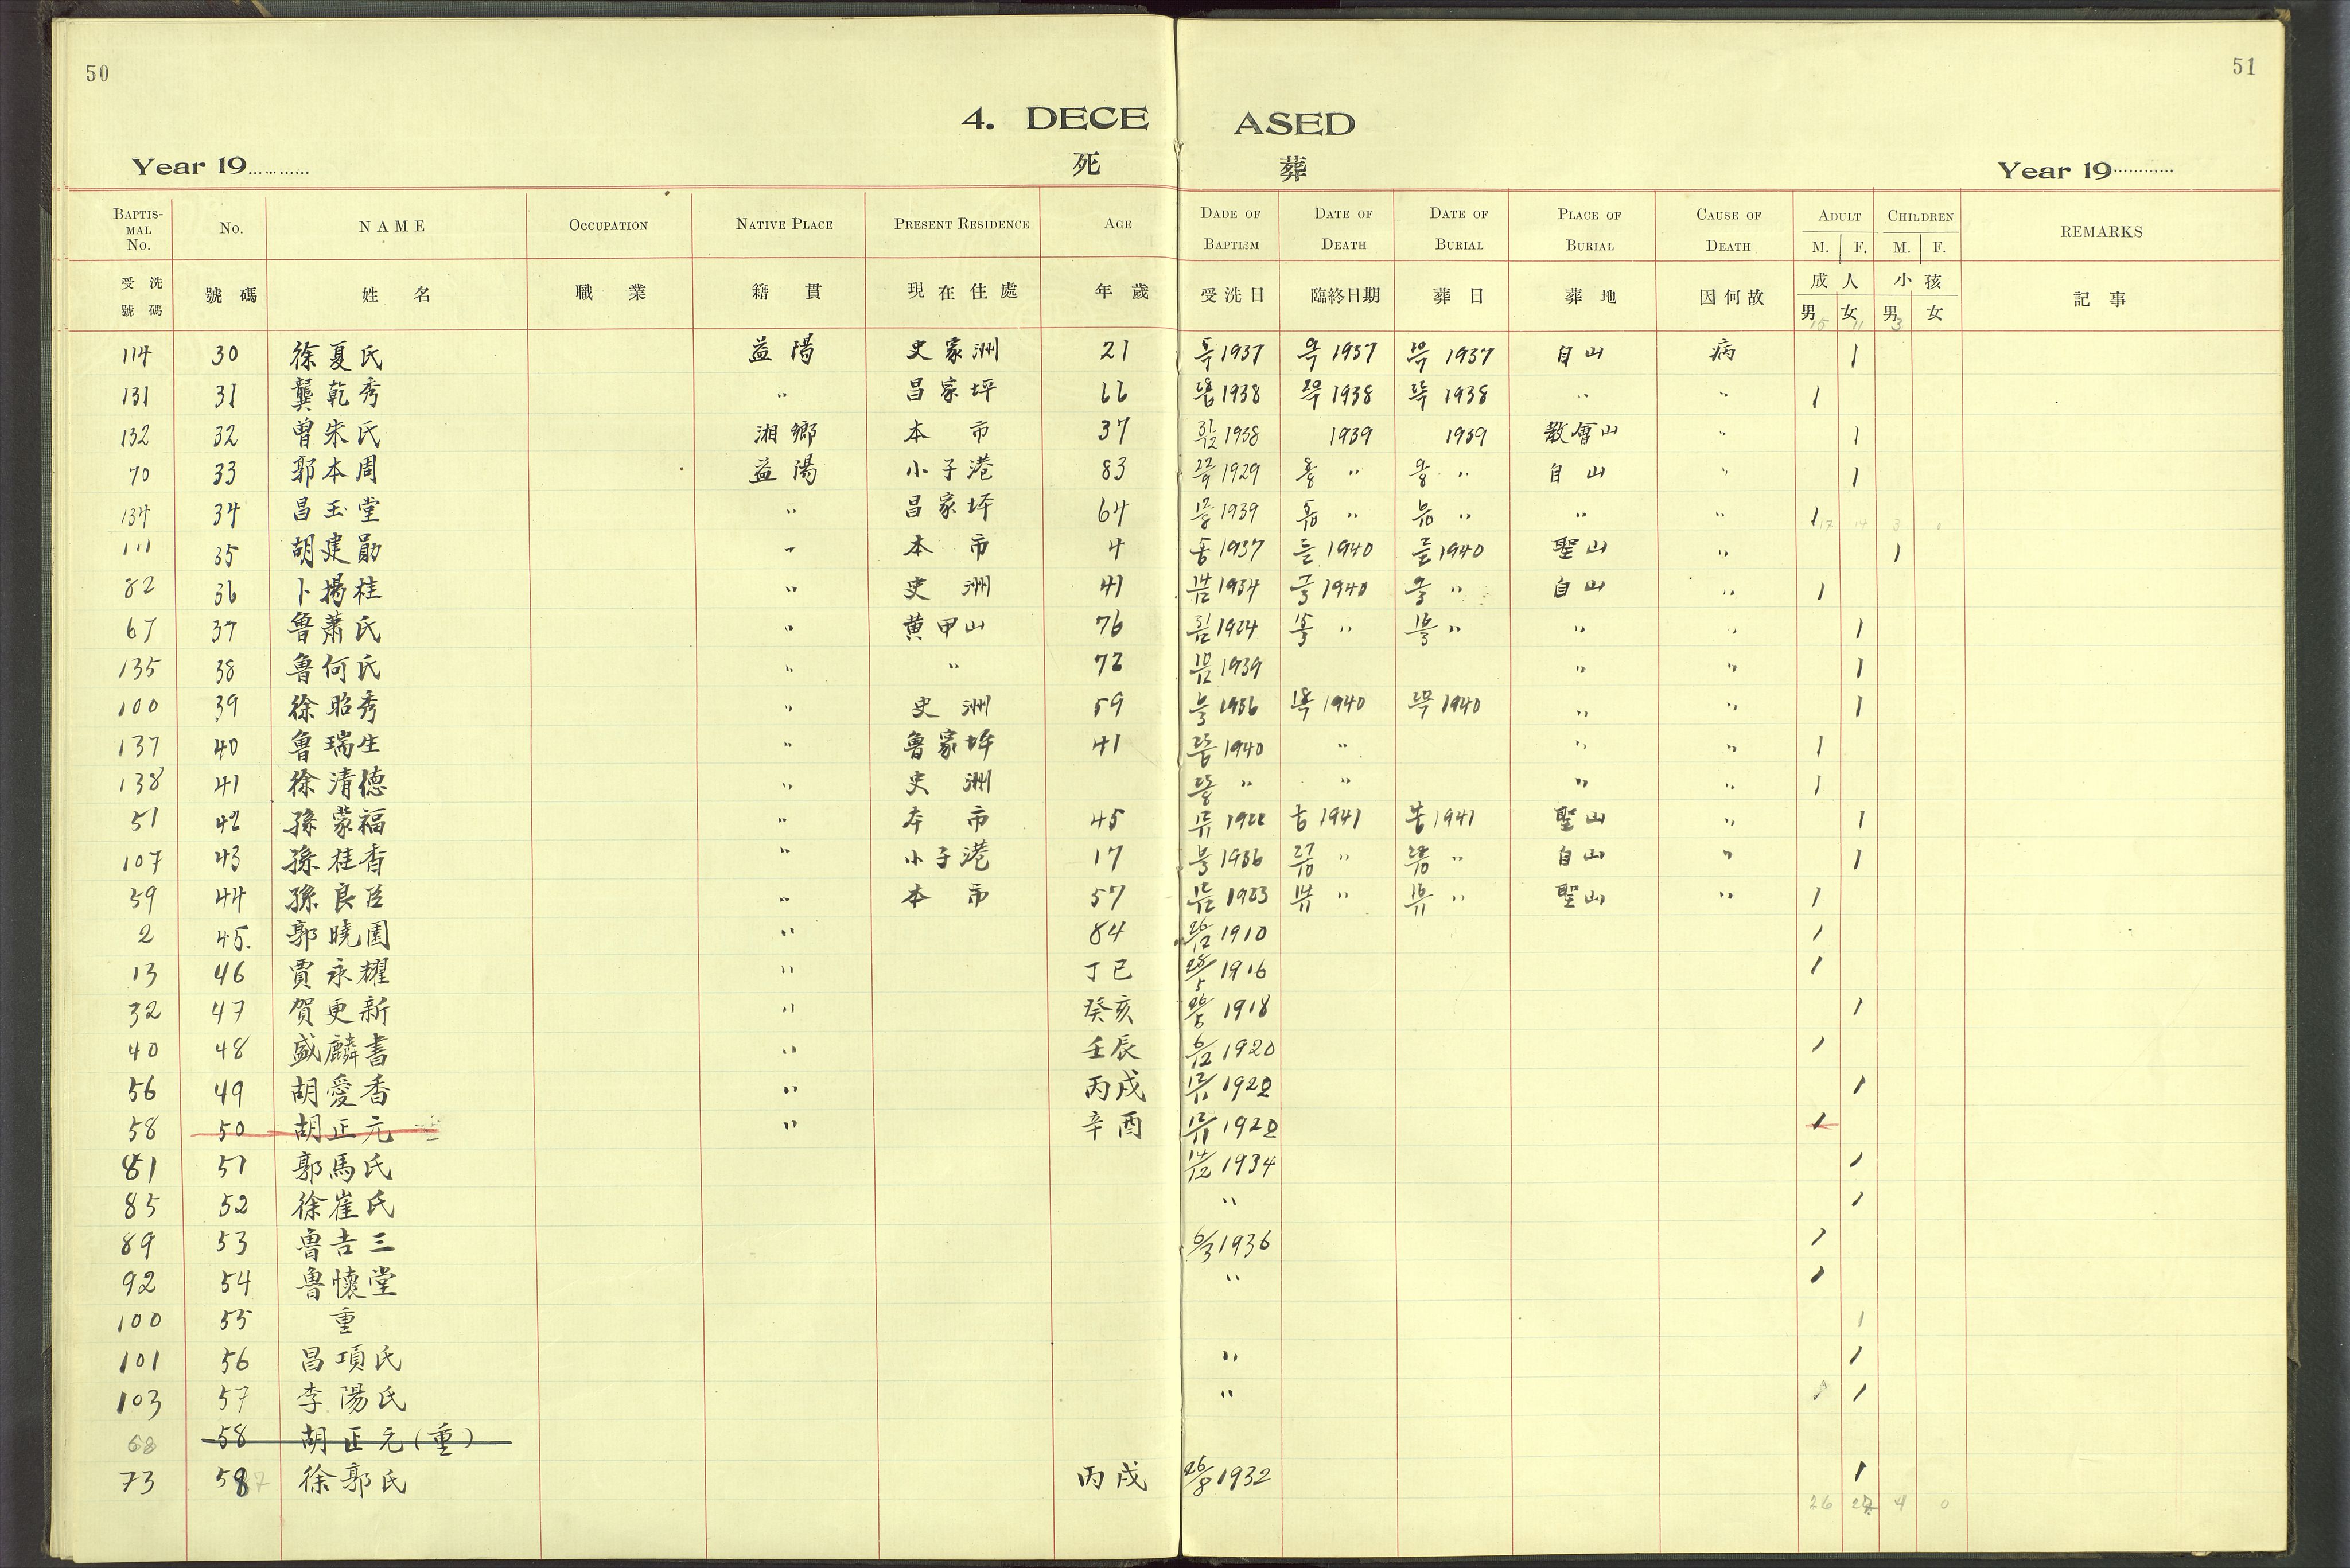 50
51
4. DECE ASED
死 葬
Year 19............
Year 19............
BAPTIS-MAL No. No. NAME OCCUPATION NATIVE PLACE PRESENT RESIDENCE AGE DADE OF BAPTISM DATE OF DEATH DATE OF BURIAL PLACE OF BURIAL CAUSE OF DEATH ADULT M. F. CHILDREN M. F. REMARKS
受洗號碼 號碼 姓名 職業 籍貫 現在住處 年歲 受洗日 臨終日期 葬日 葬地 因何故 成人 男 女 小孩 男 女 記事
15 11 3
114 30 徐夏氏 益陽 史家洲 21 1937 1937 1937 自山 病 1
131 31 龔乾秀 " 昌家坪 66 1938 1938 1938 " " 1
132 32 曾朱氏 湘鄉 本市 37 31/12 1938 1939 1939 教會山 " 1
70 33 郭本周 益陽 小子港 83 1929 " " 自山 " 1
134 34 昌玉堂 " 昌家坪 64 1939 " " " " 1
17 14 3
111 35 胡建勛 " 本市 4 1937 1940 1940 聖山 " 1
82 36 卜揚桂 " 史洲 41 14/12 1934 1940 " 自山 " 1
67 37 魯蕭氏 " 黄甲山 76 1924 " " " " 1
135 38 魯何氏 " " 72 1939 " " 1
100 39 徐昭秀 " 史洲 59 1936 1940 1940 " " 1
137 40 魯瑞生 " 魯家坪 41 1940 " " " 1
138 41 徐清德 " 史洲 " " " " 1
51 42 孫蒙福 " 本市 45 1922 1941 1941 聖山 " 1
107 43 孫桂香 " 小子港 17 1936 27/10 " 28/10 " 自山 " 1
59 44 孫良臣 " 本市 57 1923 14/11 " " 聖山 " 1
2 45. 郭曉園 " 84 26/12 1910 1
13 46 賈永耀 " 丁巳 28/5 1916 1
32 47 賀更新 " 癸亥 26/5 1918 1
40 48 盛麟書 " 壬辰 6/12 1920 1
56 49 胡愛香 " 丙戌 1922 1
58 50 胡正元 " 辛酉 1922 1
81 51 郭馬氏 14/12 1934 1
85 52 徐崔氏 " 1
89 53 魯吉三 6/3 1936 1
92 54 魯懷堂 " 1
100 55 重 1
101 56 昌項氏 " 1
103 57 李陽氏 " 1
68 58 胡正元(重)
73 58 7 徐郭氏 丙戌 26/8 1932 1
26 27 4 0